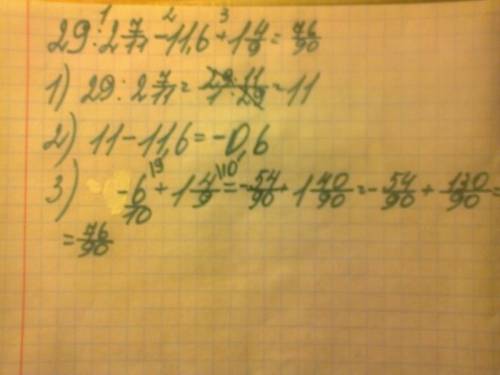 29 : 2 7/11 - 11,6 + 1 4/9 = 76/90
1) 29 : 2 7/11 = 29·11/1·29 = 11
2) 11 - 11,6 = -0,6
3) -6/10 + 1 4/9 = -54/90 + 1 40/90 = -54/90 + 130/90 =
= 76/90